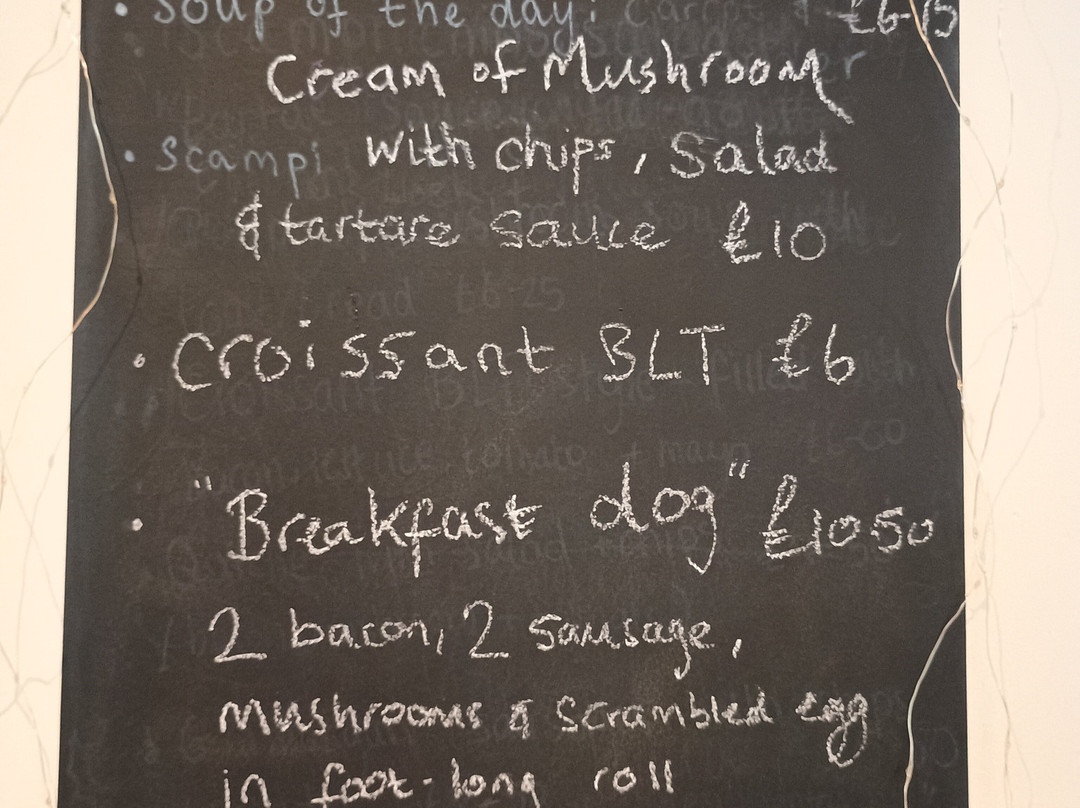 • Soup of the day: £6-15
Cream of Mushroom
• Scampi with chips, Salad
& tartare sauce £10
• Croissant BLT £6
• "Breakfast dog" £10.50
2 bacon, 2 sausage,
mushrooms & scrambled egg
in foot-long roll